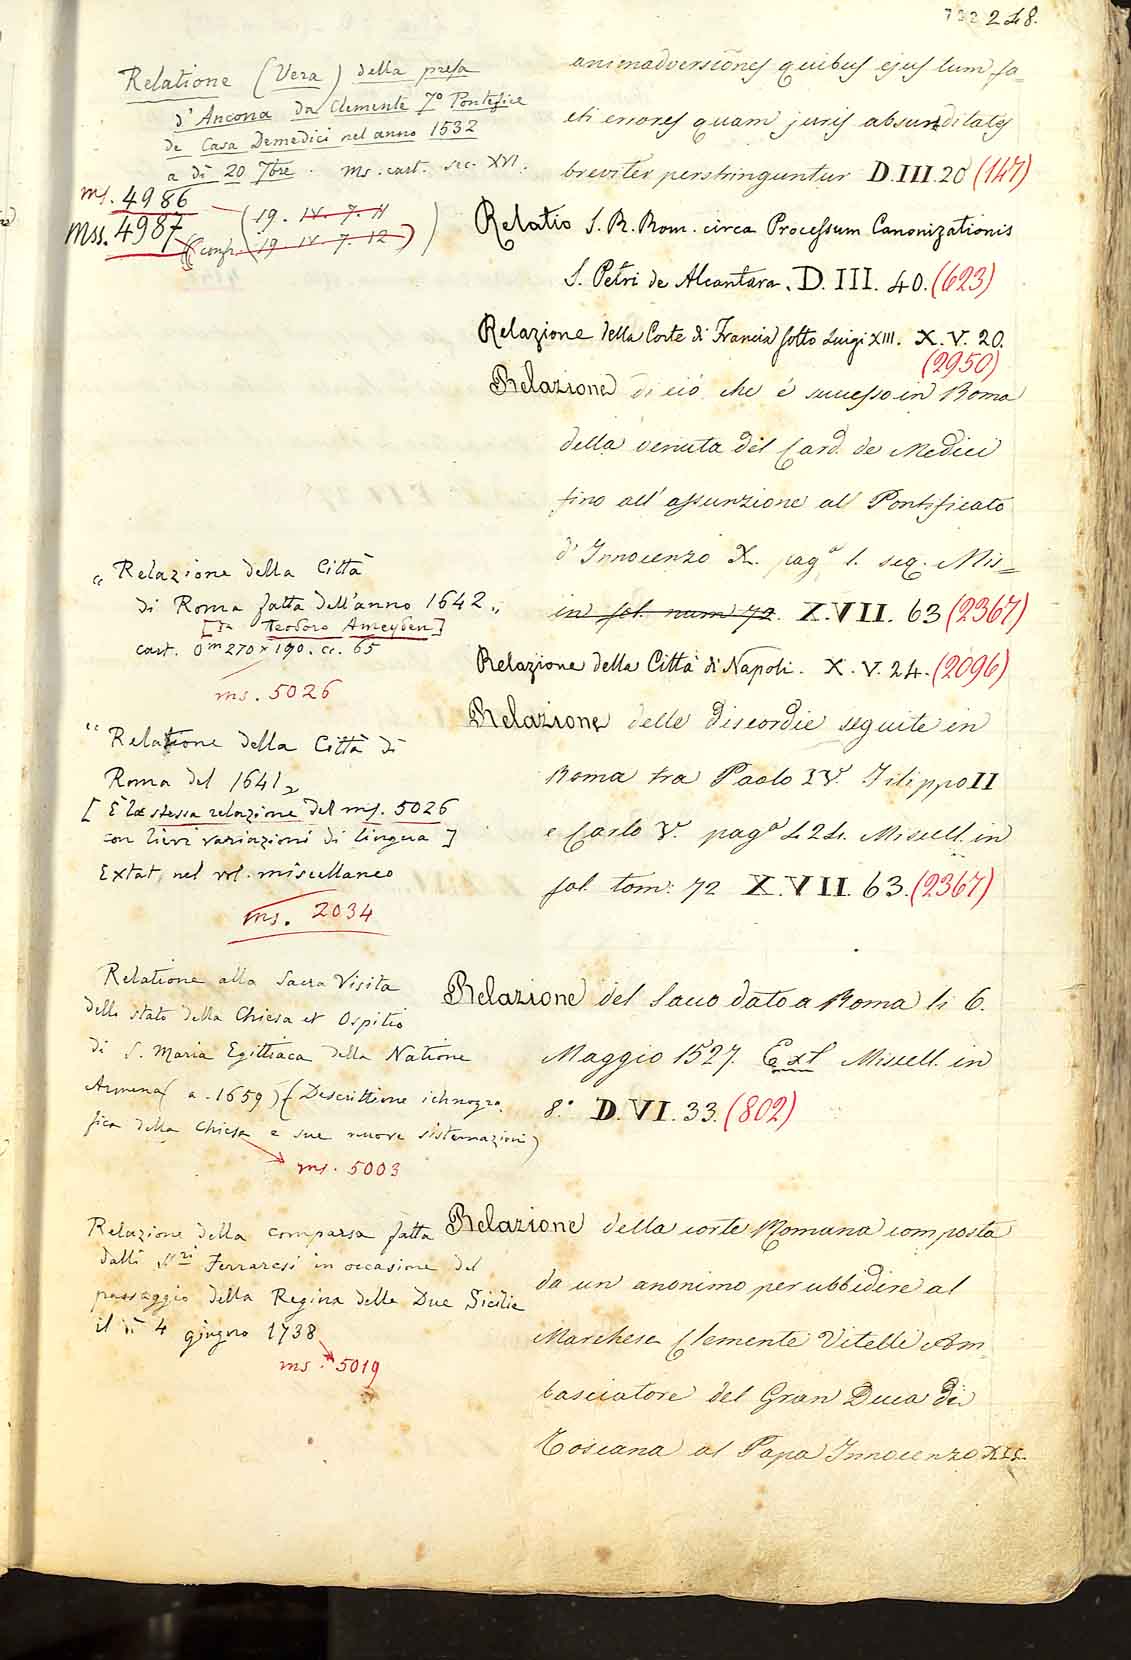 248.
Relatione (Vera) della presa
d'Ancona da Clemente 7º Pontefice
de Casa Demedici nel anno 1532
a dì 20 7bre. ms. cart. sec. XVI.
ms. 4986
(19. IV. 7. 11
mss. 4987
(conf. (19 IV. 7. 12))
„Relazione della Città
di Roma fatta dell'anno 1642„
[da Teodoro Ameyden]
cart. 0m 270 x 190. cc. 65
ms. 5026
“Relatione della Città di
Roma del 1641„
[È la stessa relazione del ms. 5026
con lievi variazioni di lingua]
Extat nel vol. miscellaneo
ms. 2034
Relatione alla Sacra Visita
dello stato della Chiesa et Ospitio
di S. Maria Egittiaca della Natione
Armena (a. 1659) (Descrittione ichnogra
fica della Chiesa e sue nuove sistemazioni)
ms. 5003
Relazione della comparsa fatta
dalli Sri Ferraresi in occasione del
passaggio della Regina delle Due Sicilie
il dì 4 giugno 1738
ms. 5019
animadversiones quibus ejus tum fa-
cti errores quam juris absurditates
breviter perstringuntur D.III.20 (147)
Relatio S. R. Rom. circa Processum Canonizationis
S. Petri de Alcantara. D. III. 40. (623)
Relazione della Corte di Francia sotto Luigi XIII. X. V. 20.
(2950)
Relazione di ciò che è successo in Roma
della venuta del Card. de Medici
fino all' assunzione al Pontificato
d'Innocenzo X. paga 1. seq. Mis=
in fol. num 72. X.VII. 63 (2367)
Relazione della Città di Napoli. X. V. 24. (2096)
Relazione delle discordie seguite in
Roma tra Paolo IV. Filippo II
e Carlo V. paga 424. Miscell. in
fol. tom: 72 X.VII. 63. (2367)
Relazione del Sacco dato a Roma li 6.
Maggio 1527. Ext Miscell. in
8.º D.VI.33. (802)
Relazione della corte Romana composta
da un anonimo per ubbidire al
Marchese Clemente Vitelli Am
basciatore del Gran Duca di
Toscana al Papa Innocenzo XII.